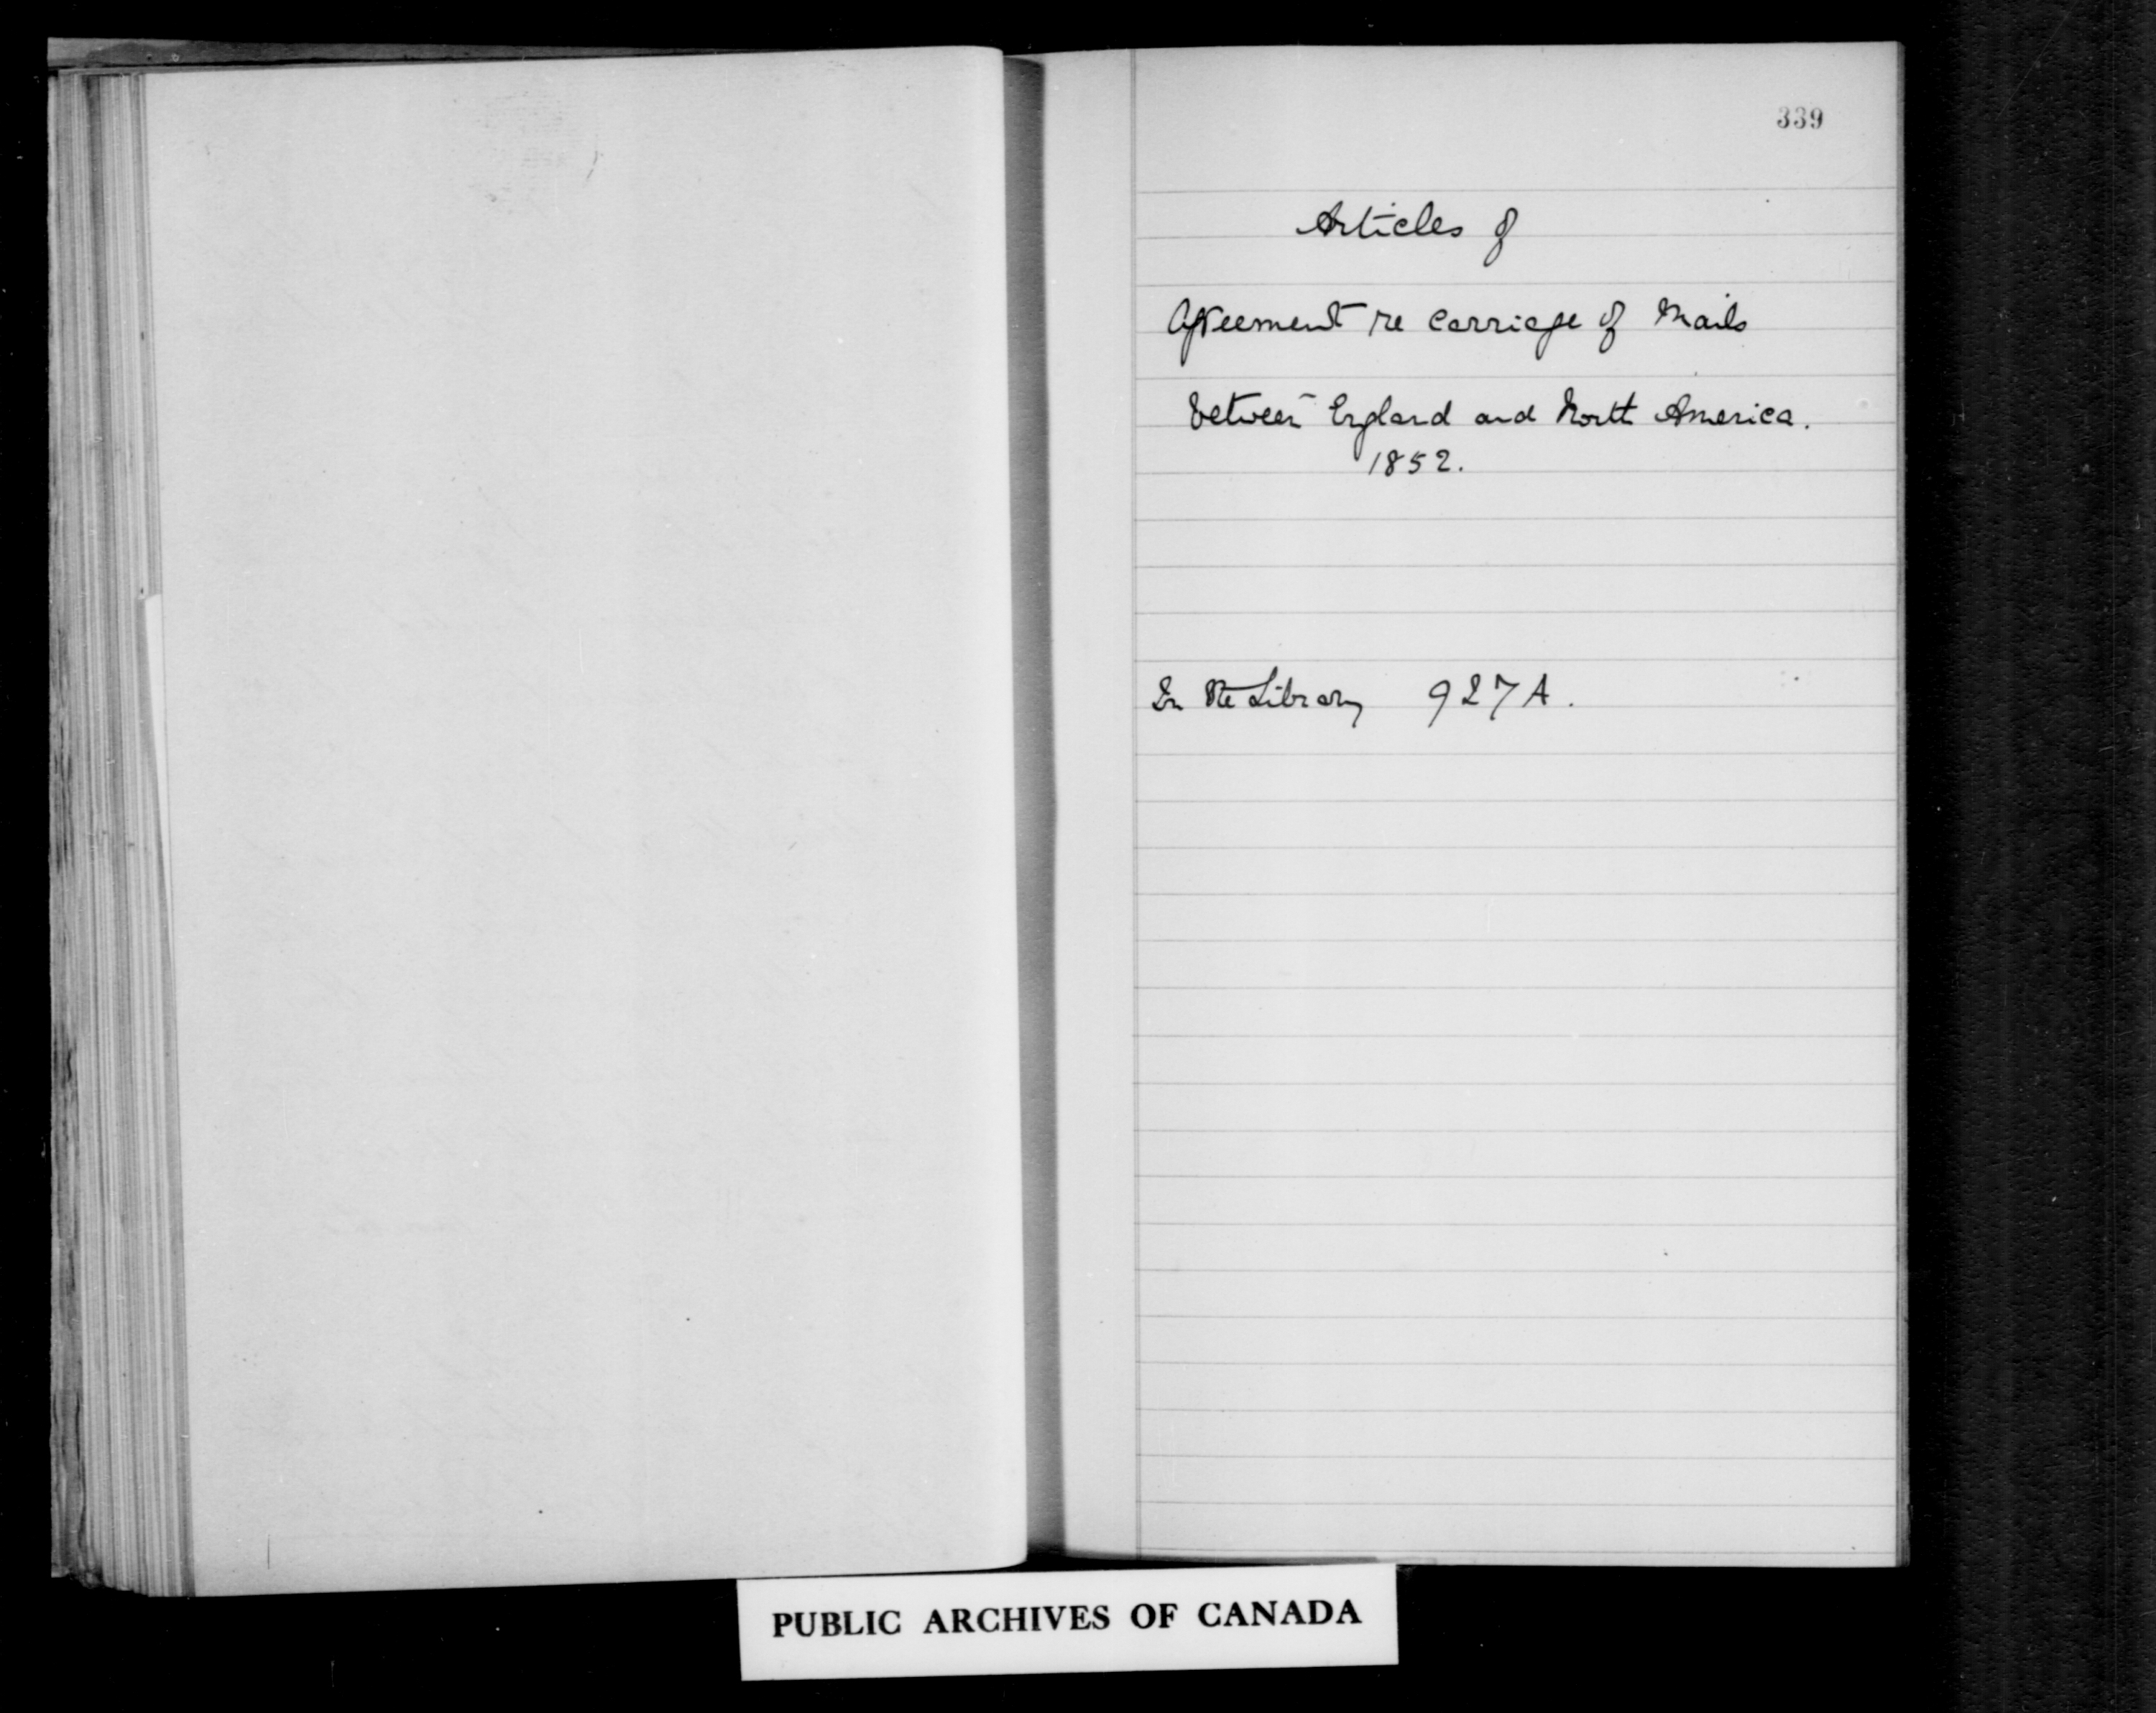 339
Articles of
Agreement re carriage of Mails
between England and North America.
1852.
In the Library 927A.
PUBLIC ARCHIVES OF CANADA